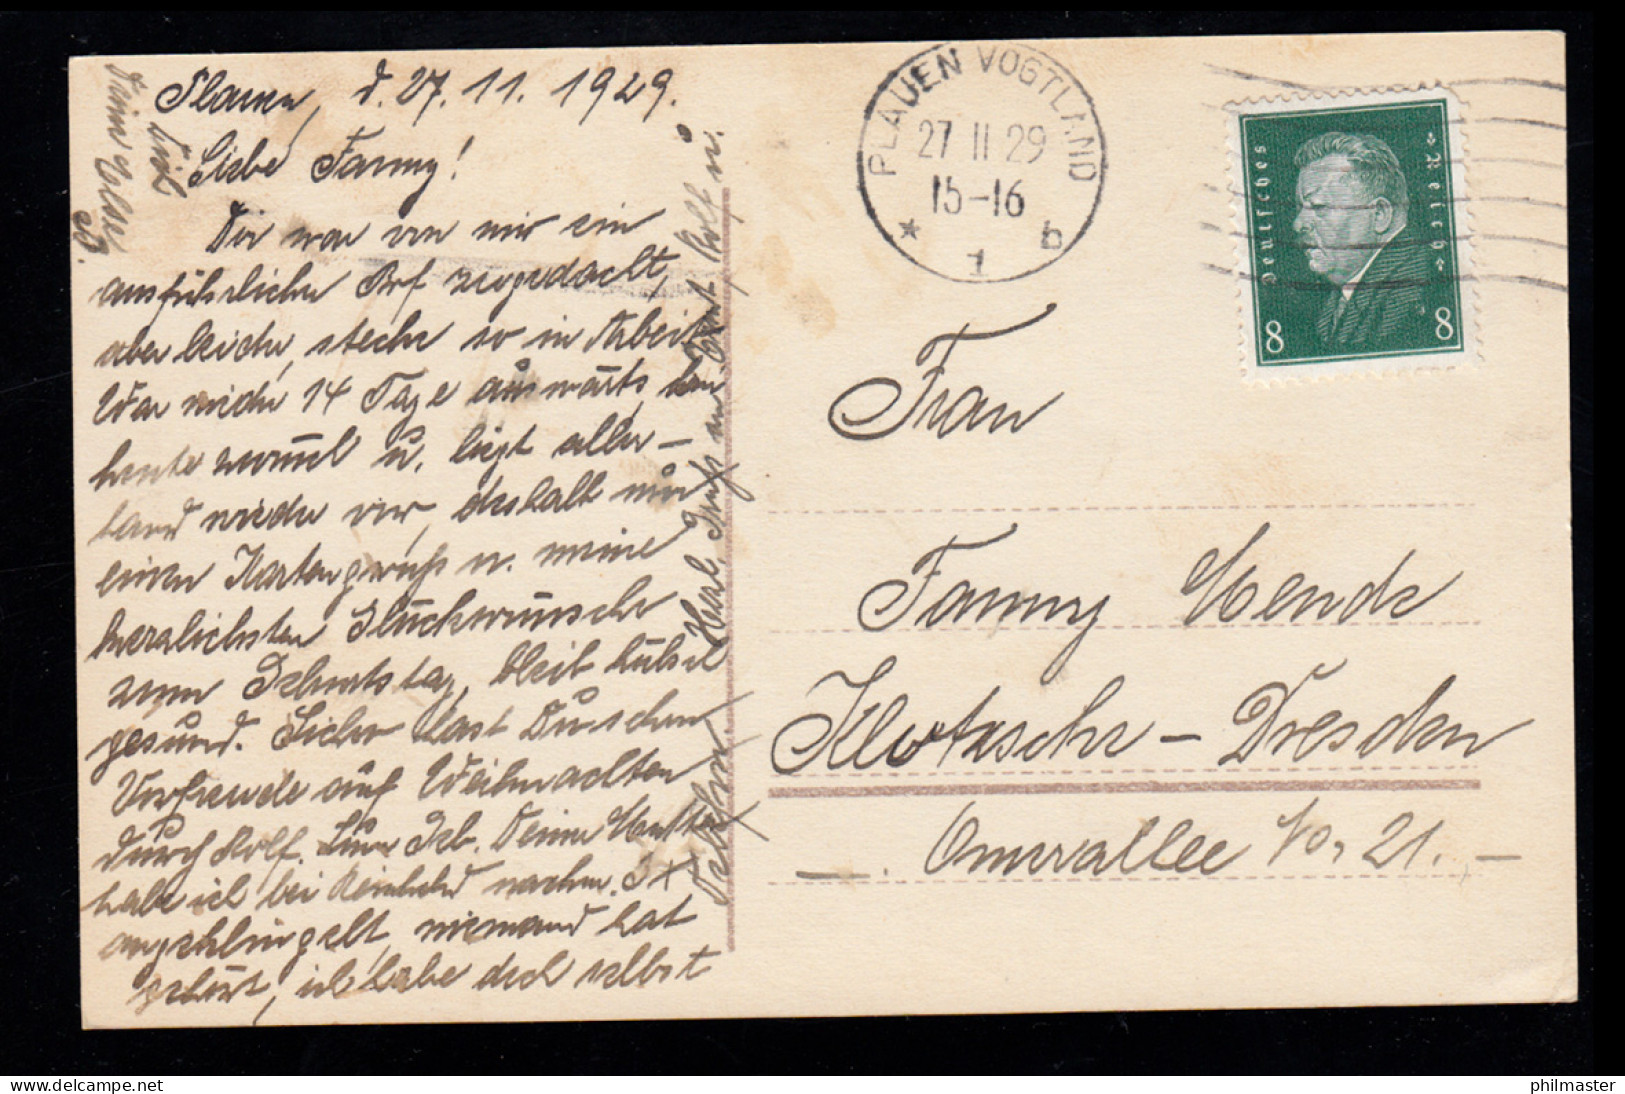 Plauen, d. 27. 11. 1929.
Liebe Fanny!
Dir war von mir ein
ausführlicher Brf zugedacht,
aber leider, stecke so in Arbeit
War wieder 14 Tage auswärts,
heute zurück u. liegt aller-
hand wieder vor, deshalb nur
einen Kartengruß u. meine
herzlichsten Glückwünsche
zum Geburtstag, bleib hübsch
gesund. Sicher hast Du schon
Vorfreude auf Weihnachten
durch Rolf. Zum Geb. Deiner Mutter
habe ich bei Reinhold nachm. 3 x
angeklingelt, niemand hat
gehört, ich habe doch selbst
Herzl. Gruß an Rolf u.
Deine Else
PLAUEN VOGTLAND
27 11 29
15-16
* 1 b
Deutsches Reich
8 8
Frau
Fanny Hende
Klotzsche - Dresden
No. 21. -
philmaster